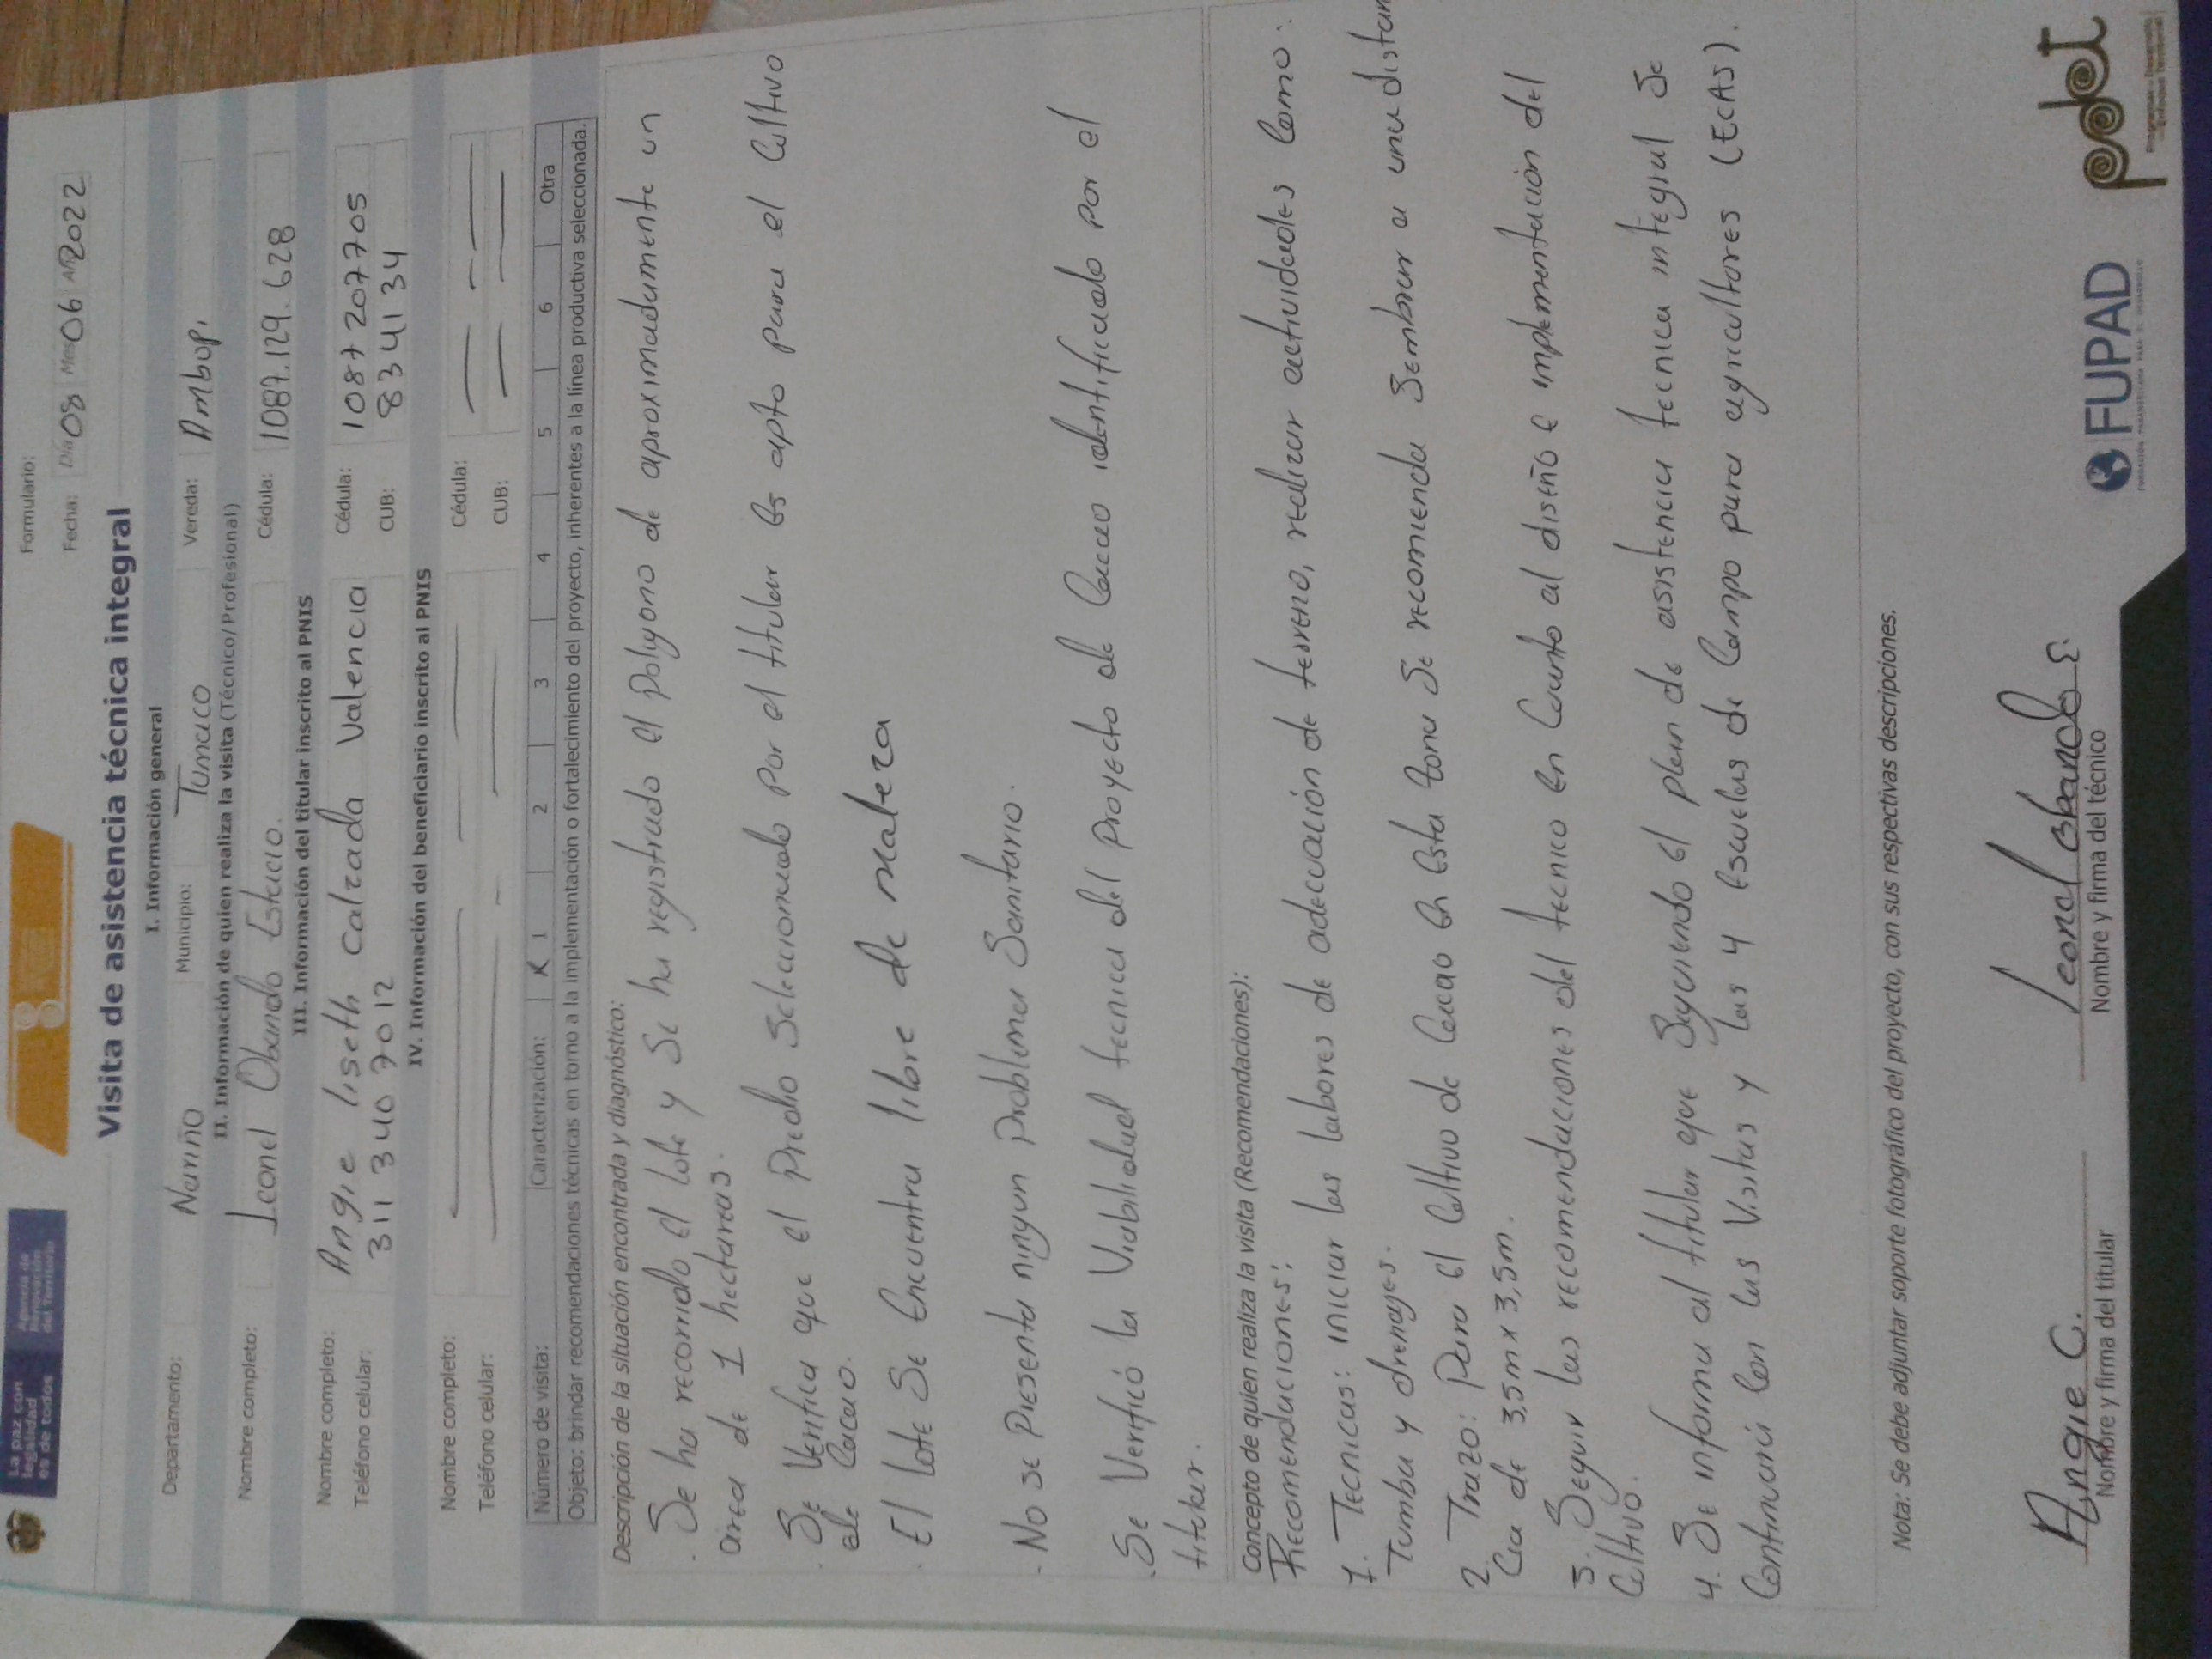 La paz con
legalidad
es de todos
Agencia de
Renovación
del Territorio
Formulario:
Fecha: Día 08 Mes 06 Añ 2022
Visita de asistencia técnica integral
I. Información general
Departamento: Nariño Municipio: Tumaco Vereda: Ambupi
II. Información de quien realiza la visita (Técnico/Profesional)
Nombre completo: Leonel Obando Estacio. Cédula: 1087.129.628
III. Información del titular inscrito al PNIS
Nombre completo: Angie liseth Calzada Valencia Cédula: 1087207705
Teléfono celular: 311 340 7012 CUB: 8334134
IV. Información del beneficiario inscrito al PNIS
Nombre completo: Cédula:
Teléfono celular: CUB:
Número de visita: Caracterización: X 1 2 3 4 5 6 Otra
Objeto: brindar recomendaciones técnicas en torno a la implementación o fortalecimiento del proyecto, inherentes a la línea productiva seleccionada.
Descripción de la situación encontrada y diagnóstico:
. Se ha recorrido el lote y se ha registrado el Polygono de aproximadamente un
area de 1 hectareas.
. Se Verifica que el Predio Seleccionado Por el titular es apto para el Cultivo
de Cacao.
. El lote Se Encuentra libre de maleza
- No se Presenta ningun Problema Sanitario.
. Se Verificó la Viabilidad tecnica del Proyecto de Cacao identificado por el
titular.
Concepto de quien realiza la visita (Recomendaciones):
Recomendaciones:
1. Tecnicas: iniciar las labores de adecuación de terreno, realizar actividades Como:
Tumba y drenajes.
2. Trazo: Para el Cultivo de Cacao en esta zona Se recomienda Sembrar a una distan
Cia de 3,5m x 3,5m.
3. Seguir las recomendaciones del tecnico en Cuanto al diseño e implementación del
Cultivo.
4. Se informa al titular que Siguiendo el plan de asistencia tecnica integral Se
Continuará Con las Visitas y las 4 Escuelas de Campo para agricultores (ECAS).
Nota: Se debe adjuntar soporte fotográfico del proyecto, con sus respectivas descripciones.
Angie C.
Nombre y firma del titular
Leonel Obando E.
Nombre y firma del técnico
FUPAD
pdet